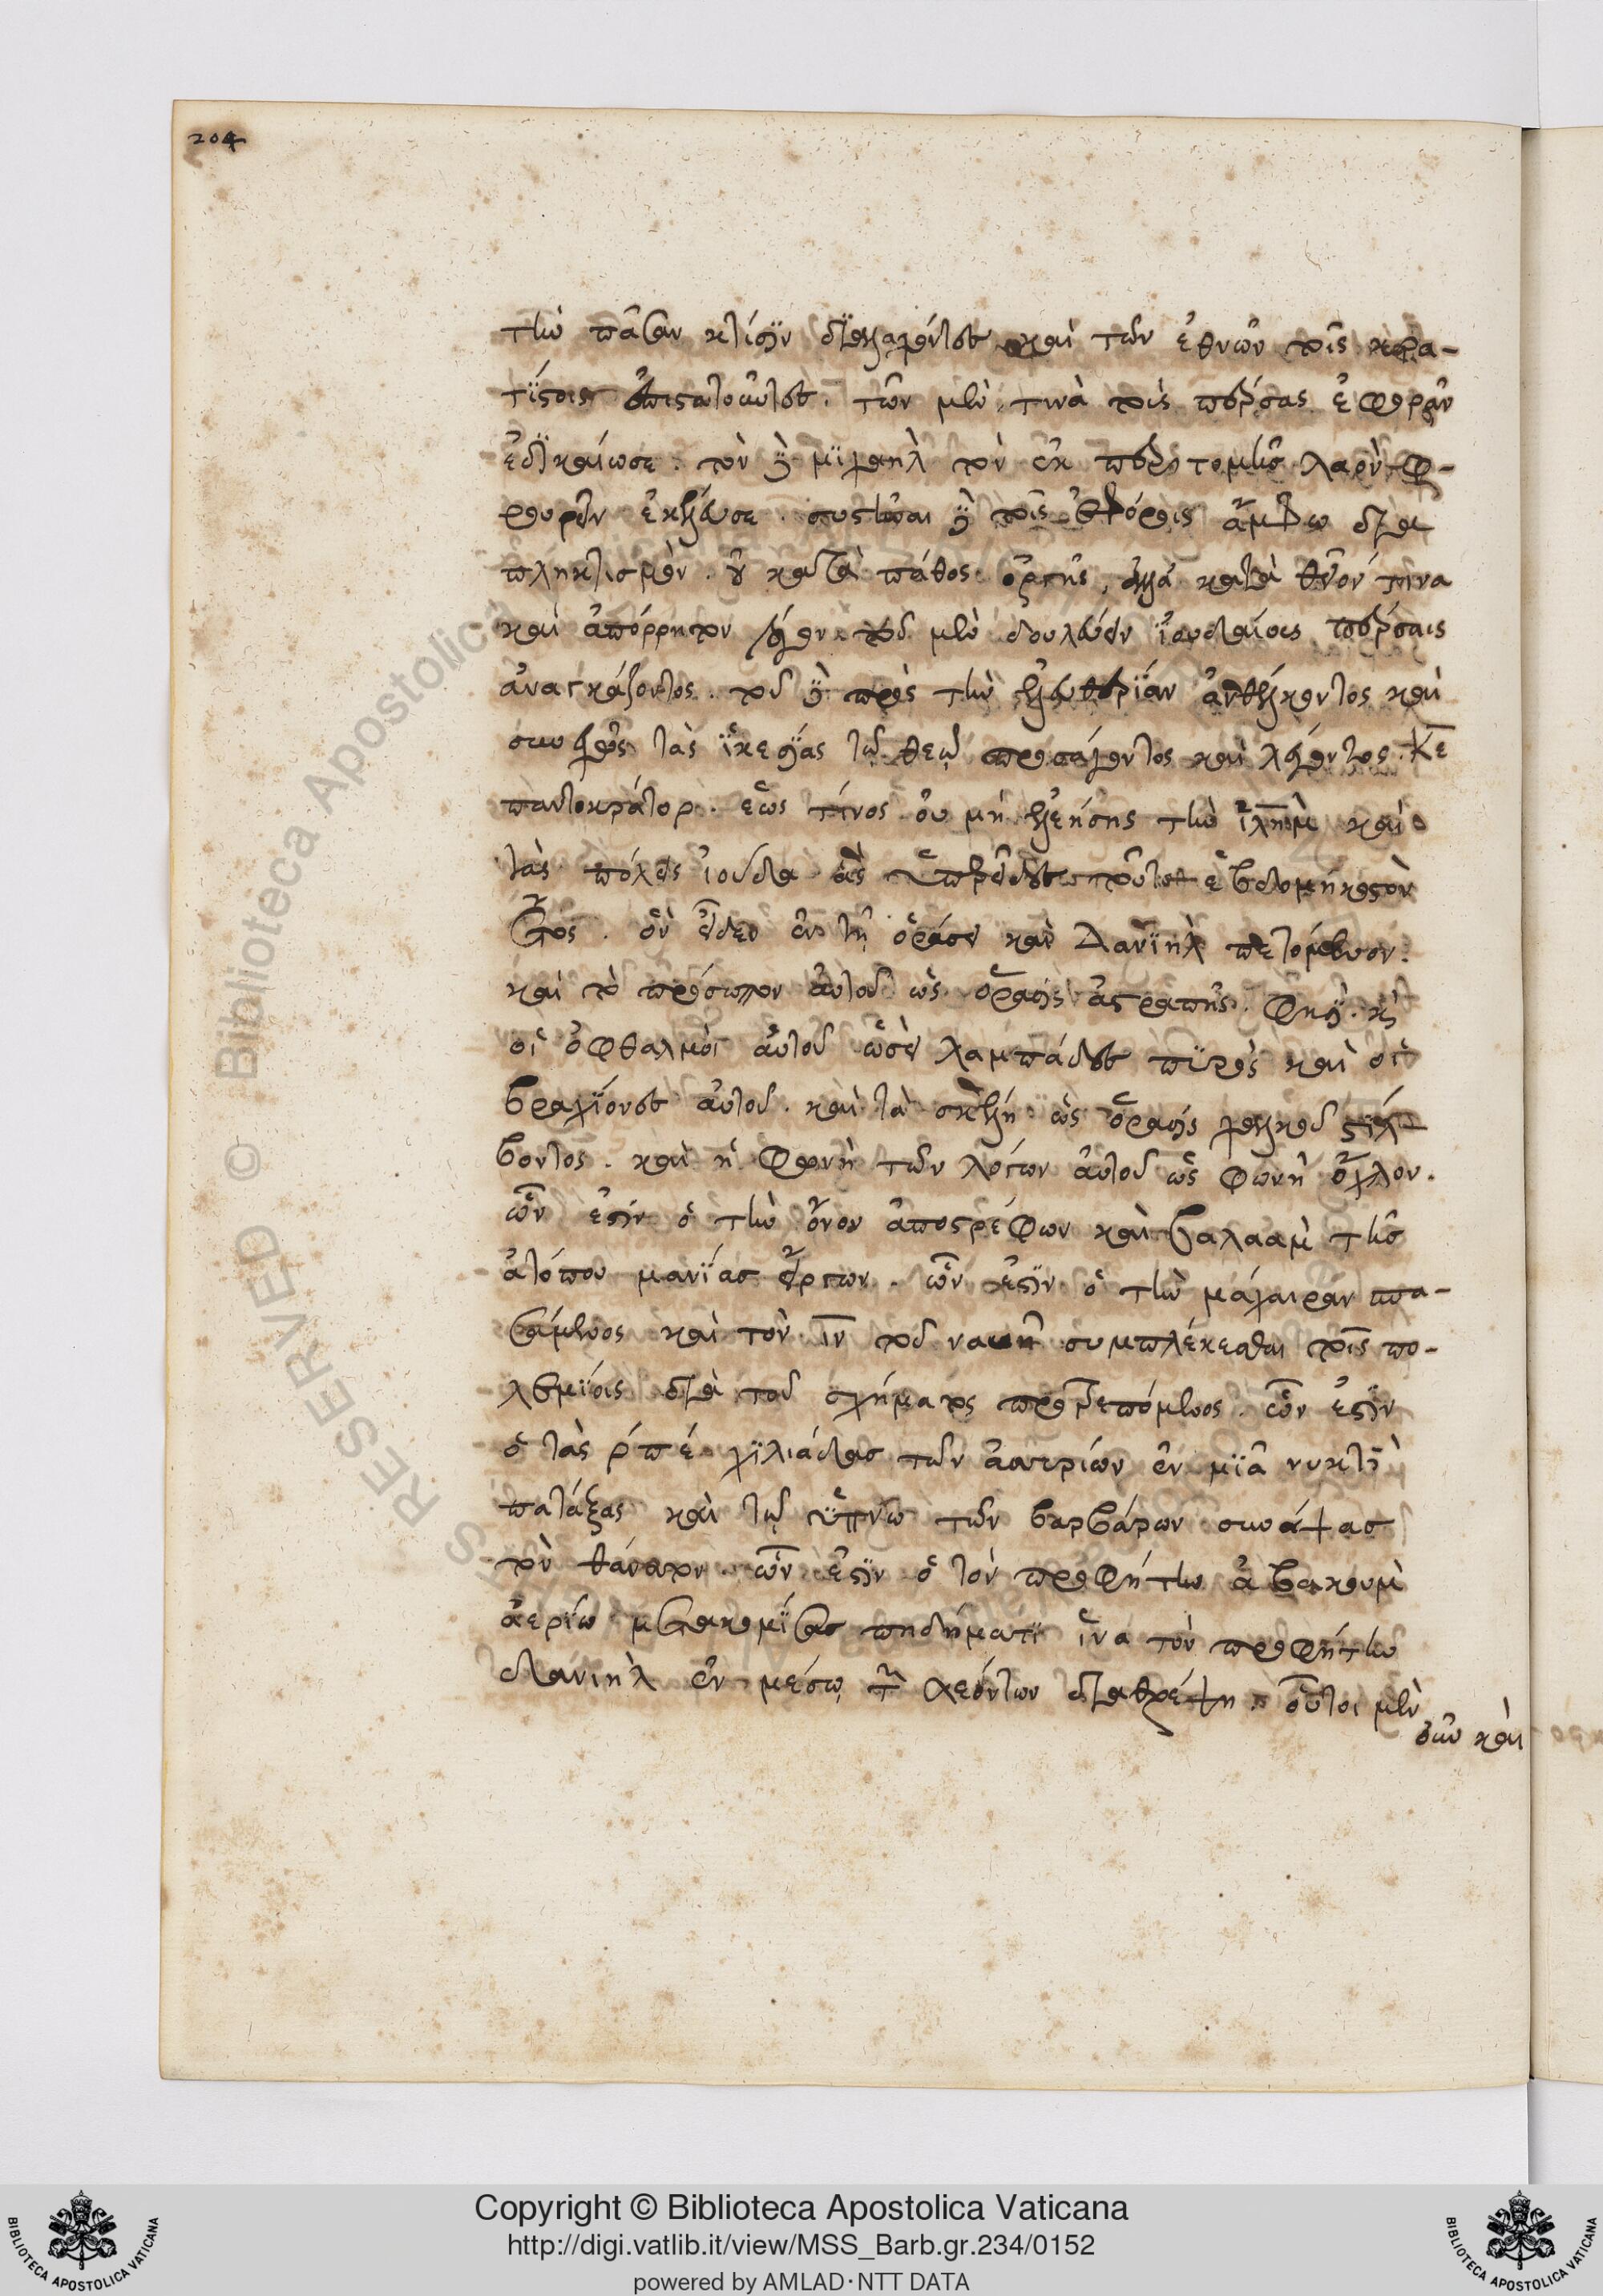 204
τὴν πᾶσαν κτίσιν διαλαχόντες καὶ τῶν ἐθνῶν τοῖς κρα-
τίστοις ἐπιστατοῦντες. τῶν μὲν τινὰ τοῖς πέρσας ἐφορᾶν
ἐδικαίωσε. τὸν δὲ μιχαὴλ τὸν ἐκ περιτομῆς λαὸν φ-
ρουρεῖν ἐκέλευσε. συστῆναι δὲ τοῖς ἐφόροις ἄμφω δια
πληκτισμὸν. οὐ κατὰ πάθος ὀργῆς, ἀλλὰ κατὰ θεῖον τινα
καὶ ἀπόρρητον λόγον τοῦ μὲν δουλεύειν ἰουδαίοις πέρσαις
ἀναγκάζοντος. τοῦ δὲ πρὸς τὴν ἐλευθερίαν ἀνθέλκοντος καὶ
συνεχῶς τὰς ἱκεσίας τῷ θεῷ προσάγοντος καὶ λέγοντος. κε
παντοκράτορ. ἕως τίνος οὐ μὴ ἐλεήσης τὴν ἰλημ καὶ
τὰς πόλεις ἰούδα ἃς ὑπερεῖδες τοῦτο ἑβδομηκοστὸν
ἔτος. ὃν εἶδεν ἐν τῇ ὁράσει καὶ Δανιὴλ πετόμενον.
καὶ τὸ πρόσωπον αὐτοῦ ὡς ὅρασις ἀστραπῆς. φησὶ. κὶ
οἱ ὀφθαλμοὶ αὐτοῦ ὡσεὶ λαμπάδες πυρὸς καὶ οἱ
βραχίονες αὐτοῦ. καὶ τὰ σκέλη ὡς ὅρασις χαλκοῦ στίλ-
βοντος. καὶ ἡ φωνὴ τῶν λόγων αὐτοῦ ὡς φωνὴ ὄχλου.
ὧν ἐστὶν ὁ τὴν ὄνον ἀποστρέφων καὶ βαλαὰμ τῆς
ἀτόπου μανίας εἴργων. ὧν ἐστὶν ὁ τὴν μάχαιραν σπα-
σάμενος καὶ τὸν ιν τοῦ ναυῆ συμπλέκεσθαι τοῖς πο-
λεμίοις διὰ τοῦ σχήματος προτρεπόμενος. ὧν ἐστὶν
ὁ τὰς ρπέ χιλιάδας τῶν ἀσσυρίων ἐν μιᾶ νυκτὶ
πατάξας καὶ τῷ ὕπνω τῶν βαρβάρων συνάψας
τὸν θάνατον. ὧν ἐστὶν ὁ τὸν προφήτην ἀβακοὺμ
ἀερίω μετακομίσας πηδήματι ἵνα τὸν προφήτην
δανιὴλ ἐν μέσῳ τῶν λεόντων διαθρέψη. οὗτοι μὲν
οὖν καὶ
Copyright © Biblioteca Apostolica Vaticana
http://digi.vatlib.it/view/MSS_Barb.gr.234/0152
powered by AMLAD·NTT DATA
BIBLIOTECA APOSTOLICA VATICANA
BIBLIOTECA APOSTOLICA VATICANA